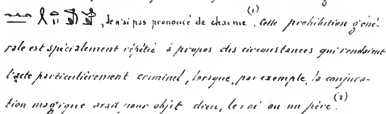 , Je n'ai pas prononcé de charme (1). Cette prohibition géné-
rale est spécialement répétée à propos des circonstances qui rendaient
l'acte particulièrement criminel, lorsque, par exemple, la conjura-
tion magique avait pour objet dieu, le roi ou un père. (2)